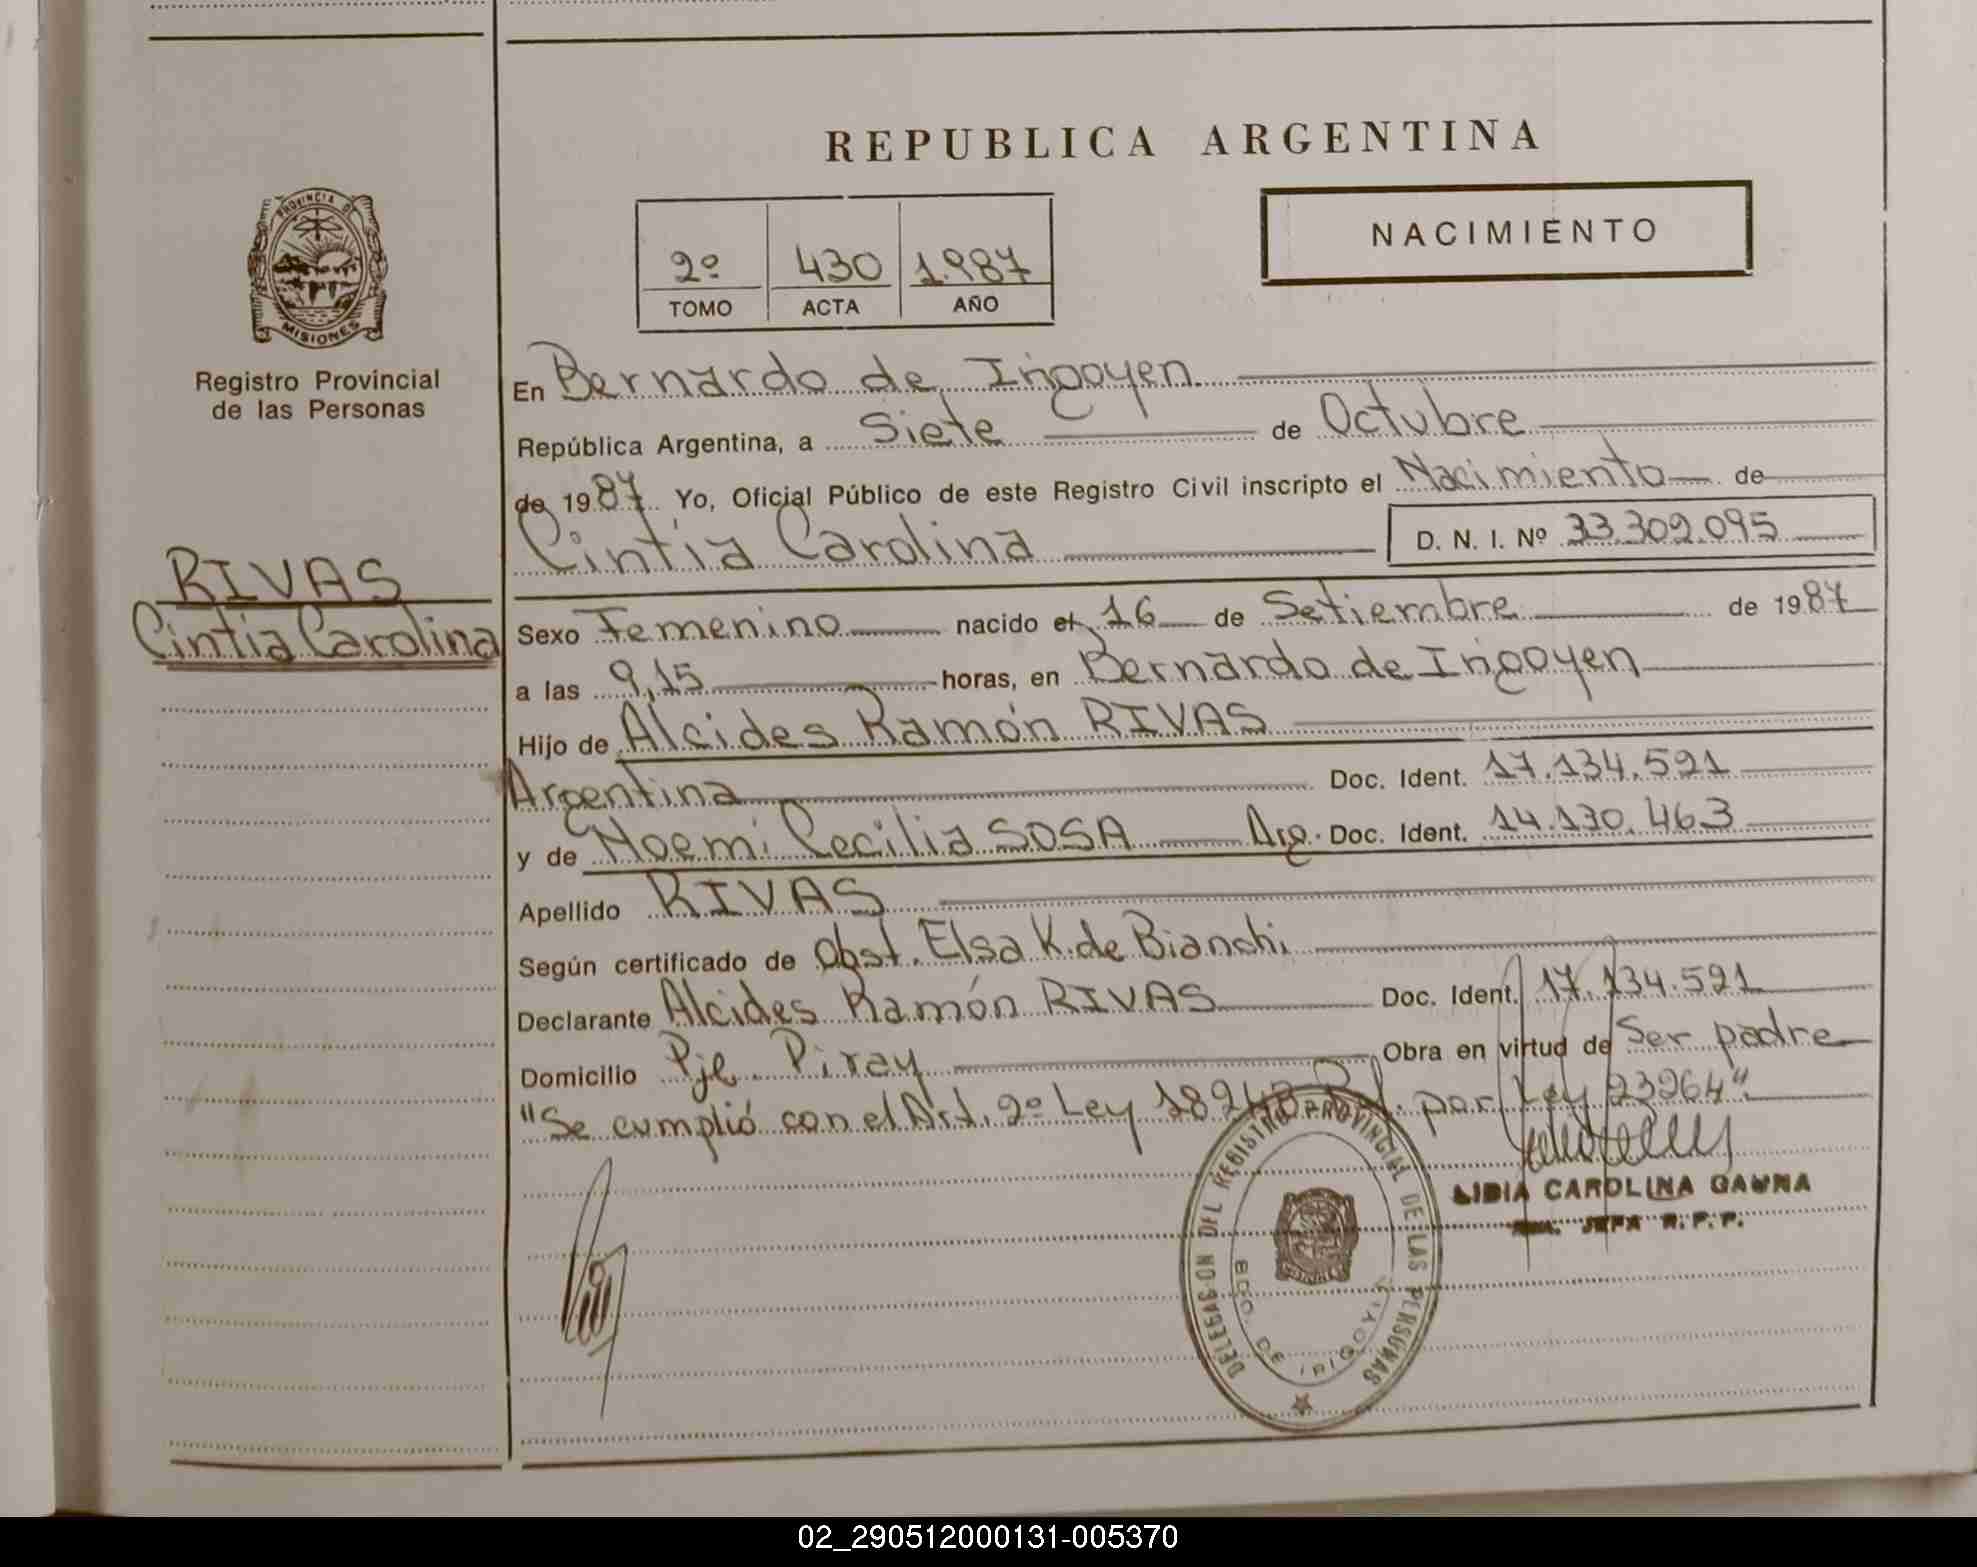 REPUBLICA ARGENTINA
PROVINCIA DE
MISIONES
Registro Provincial
de las Personas
2º 430 1.987
TOMO ACTA AÑO
NACIMIENTO
RIVAS
Cintia Carolina
En Bernardo de Irigoyen
República Argentina, a Siete de Octubre
de 1987 Yo, Oficial Público de este Registro Civil inscripto el Nacimiento de
Cintia Carolina D. N. I. Nº 33.309.095
Sexo Femenino nacido el 16 de Setiembre de 1987
a las 9,15 horas, en Bernardo de Irigoyen
Hijo de Alcides Ramón RIVAS
Argentina Doc. Ident. 17.134.591
y de Noemi Cecilia SOSA Arg. Doc. Ident. 14.130.463
Apellido RIVAS
Según certificado de Obst. Elsa K. de Bianchi
Declarante Alcides Ramón RIVAS Doc. Ident. 17.134.591
Domicilio Pje. Piray Obra en virtud de Ser padre
"Se cumplió con el Art. 2º Ley 18248 por Ley 23264".
DELEGASON DEL REGISTRO PROVINCIAL DE LAS PERSONAS
BDO. DE IRIGOYEN
LIDIA CAROLINA GAUNA
JEFA R.P.P.
02_290512000131-005370